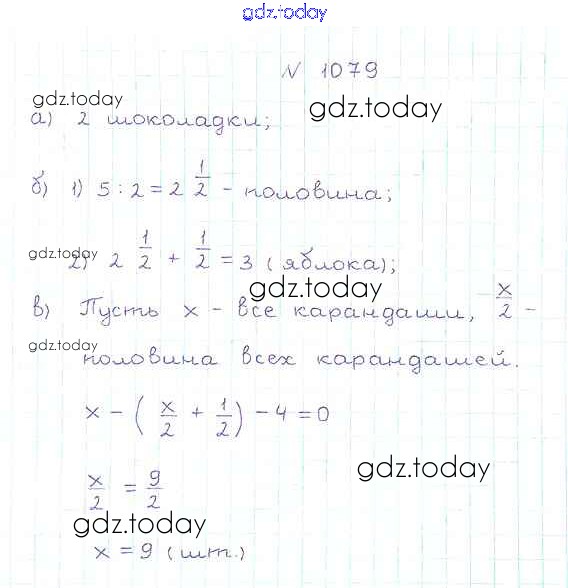 gdz.today
N 1079
gdz.today
gdz.today
а) 2 шоколадки;
б) 1) 5 : 2 = 2 1/2 - половина;
gdz.today
2) 2 1/2 + 1/2 = 3 (яблока);
gdz.today
в) Пусть x - все карандаши, x/2 -
gdz.today
половина всех карандашей.
x - ( x/2 + 1/2 ) - 4 = 0
gdz.today
x/2 = 9/2
gdz.today
x = 9 (шт.)